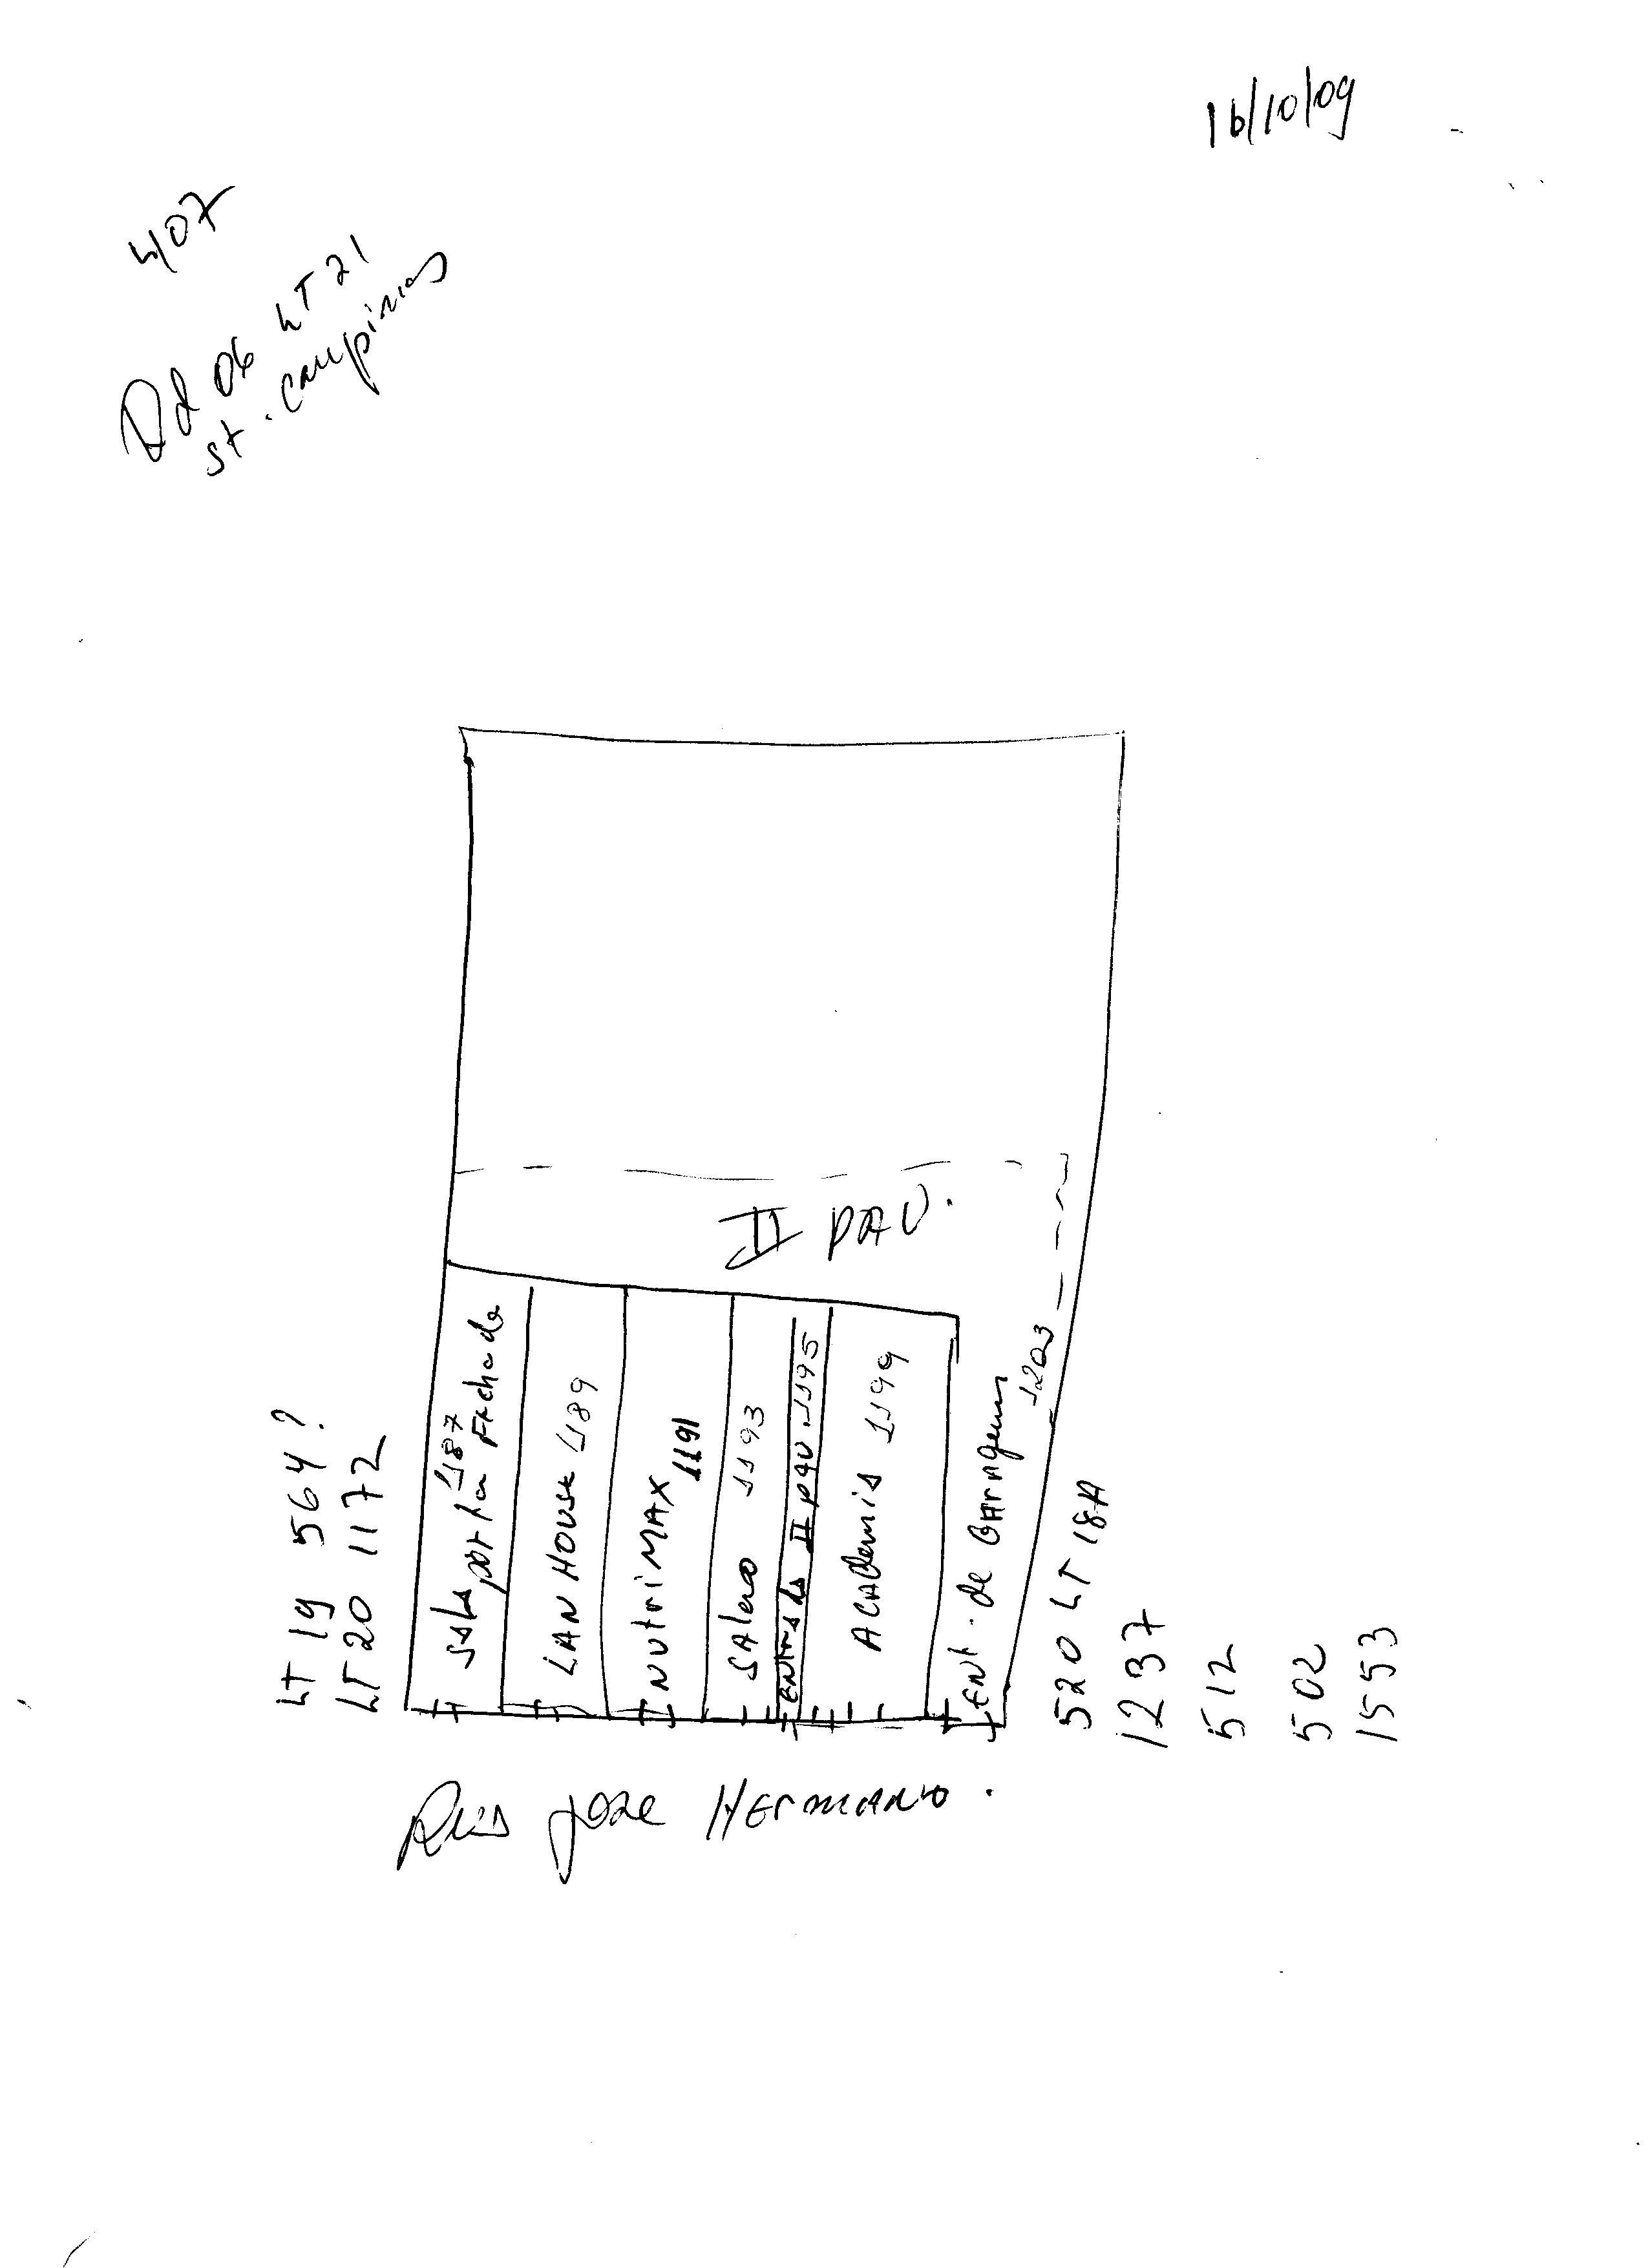 16/10/09
4/07
Qd 06 LT 21
st. campinas
II PAV.
LT 19 564?
LT 20 1172
sala 1187
porta Fechada
LAN HOUSE 1189
NUtriMAX 1191
SAlão 1193
entrada II pav. 1195
ACADemia 1199
ENt. de GArAgem 1203
520 LT 18A
1237
512
502
1553
Rua José HErmANO.